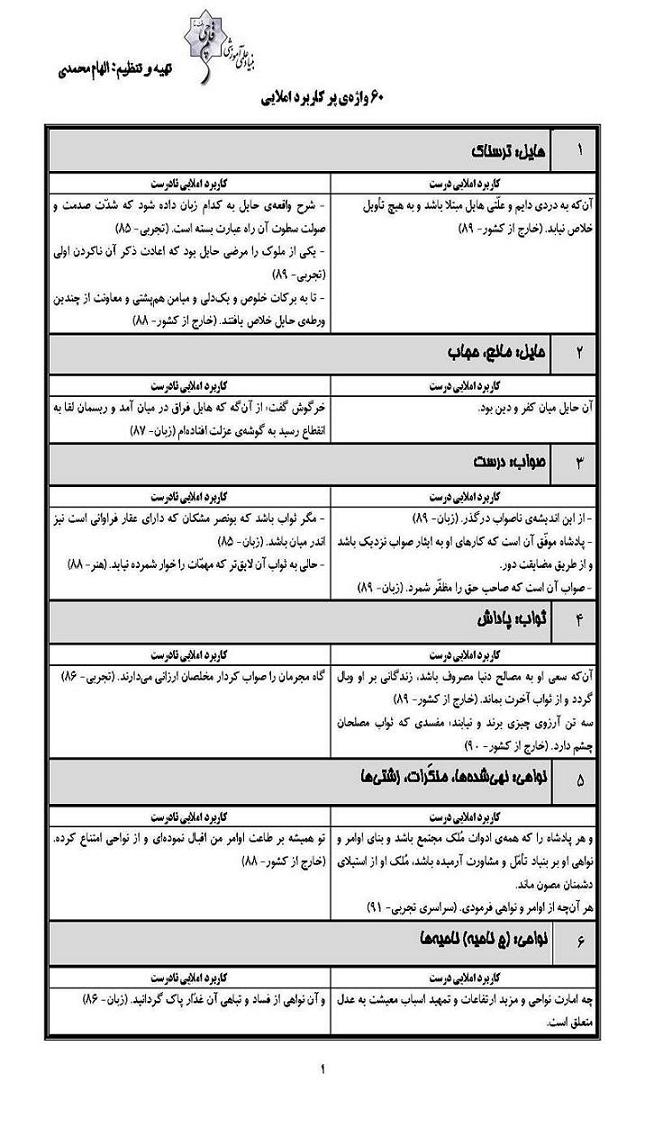 بنیاد علمی آموزشی
قلم چی
تهیه و تنظیم: الهام محمدی
۶۰ واژه‌ی پر کاربرد املایی
۱ هایل: ترسناک
کاربرد املایی درست
آن‌که به دردی دایم و علّتی هایل مبتلا باشد و به هیچ تأویل
خلاص نیابد. (خارج از کشور- ۸۹)
کاربرد املایی نادرست
- شرح واقعه‌ی حایل به کدام زبان داده شود که شدّت صدمت و
صولت سطوت آن راه عبارت بسته است. (تجربی- ۸۵)
- یکی از ملوک را مرضی حایل بود که اعادت ذکر آن ناکردن اولی
(تجربی- ۸۹)
- تا به برکات خلوص و یک‌دلی و میامن هم‌پشتی و معاونت از چندین
ورطه‌ی حایل خلاص یافتند. (خارج از کشور- ۸۸)
۲ حایل: مانع، حجاب
کاربرد املایی درست
آن حایل میان کفر و دین بود.
کاربرد املایی نادرست
خرگوش گفت: از آن‌گه که هایل فراق در میان آمد و ریسمان لقا به
انقطاع رسید به گوشه‌ی عزلت افتاده‌ام (زبان- ۸۷)
۳ صواب: درست
کاربرد املایی درست
- از این اندیشه‌ی ناصواب درگذر. (زبان- ۸۹)
- پادشاه موفّق آن است که کارهای او به ایثار صواب نزدیک باشد
و از طریق مضایقت دور.
- صواب آن است که صاحب حق را مظفّر شمرد. (زبان- ۸۹)
کاربرد املایی نادرست
- مگر ثواب باشد که بونصر مشکان که دارای عقار فراوانی است نیز
اندر میان باشد. (زبان- ۸۵)
- حالی به ثواب آن لایق‌تر که مهمّات را خوار شمرده نیاید. (هنر- ۸۸)
۴ ثواب: پاداش
کاربرد املایی درست
آن‌که سعی او به مصالح دنیا مصروف باشد، زندگانی بر او وبال
گردد و از ثواب آخرت بماند. (خارج از کشور- ۸۹)
سه تن آرزوی چیزی برند و نیابند: مفسدی که ثواب مصلحان
چشم دارد. (خارج از کشور- ۹۰)
کاربرد املایی نادرست
گاه مجرمان را صواب کردار مخلصان ارزانی می‌دارند. (تجربی- ۸۶)
۵ نواهی: نهی‌شده‌ها، منکَرات، زشتی‌ها
کاربرد املایی درست
و هر پادشاه را که همه‌ی ادوات مُلک مجتمع باشد و بنای اوامر و
نواهی او بر بنیاد تأمّل و مشاورت آرمیده باشد، مُلک او از استیلای
دشمنان مصون ماند.
هر آن‌چه از اوامر و نواهی فرمودی. (سراسری تجربی- ۹۱)
کاربرد املایی نادرست
تو همیشه بر طاعت اوامر من اقبال نموده‌ای و از نواحی امتناع کرده.
(خارج از کشور- ۸۸)
۶ نواحی: (ج ناحیه) ناحیه‌ها
کاربرد املایی درست
چه امارت نواحی و مزید ارتفاعات و تمهید اسباب معیشت به عدل
متعلق است.
کاربرد املایی نادرست
و آن نواهی از فساد و تباهی آن غدّار پاک گردانید. (زبان- ۸۶)
۱